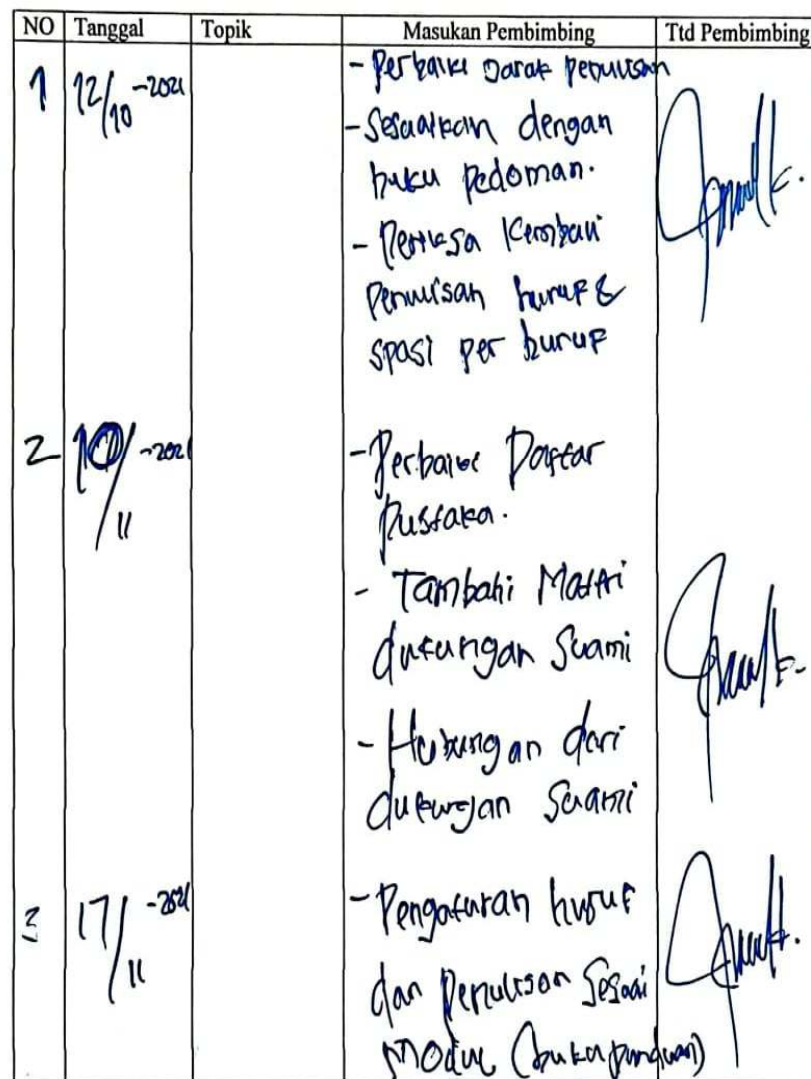 NO Tanggal Topik Masukan Pembimbing Ttd Pembimbing
1 12/10 -2021 - Perbaiki Jarak penulisan
- Sesuaikan dengan
buku pedoman.
- Periksa Kembali
Penulisan huruf &
spasi per huruf
2 10/11 -2021 - Perbaiki Daftar
Pustaka.
- Tambahi Materi
dukungan Suami
- Hubungan dari
dukungan Suami
3 17/11 -2021 - Pengaturan huruf
dan Penulisan Sesuai
Modul (buku panduan)